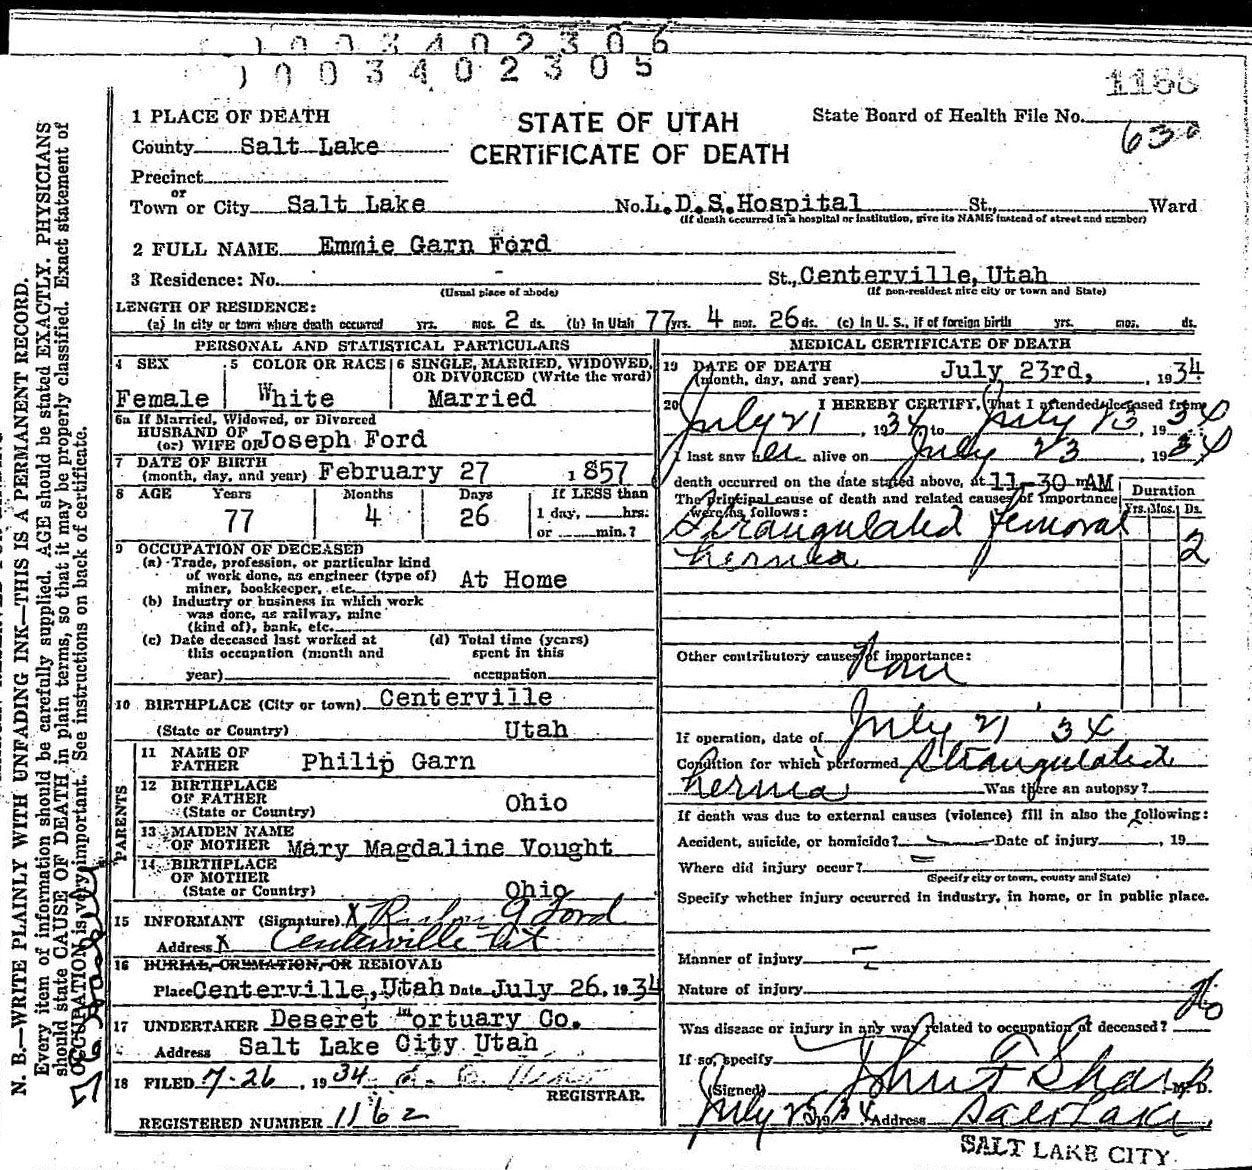 1003402306
1003402305
1188
1 PLACE OF DEATH
STATE OF UTAH
CERTIFICATE OF DEATH
State Board of Health File No.
630
County Salt Lake
Precinct
or
Town or City Salt Lake No. L.D.S. Hospital St., Ward
(If death occurred in a hospital or institution, give its NAME instead of street and number)
2 FULL NAME Emmie Garn Ford
3 Residence: No. - St., Centerville, Utah
(Usual place of abode) (If non-resident give city or town and State)
LENGTH OF RESIDENCE:
(a) In city or town where death occurred yrs. mos. 2 ds. (b) in Utah 77 yrs. 4 mos. 26 ds. (c) In U. S., if of foreign birth yrs. mos. ds.
PERSONAL AND STATISTICAL PARTICULARS
4 SEX
Female
5 COLOR OR RACE
White
6 SINGLE, MARRIED, WIDOWED,
OR DIVORCED (Write the word)
Married
6a If Married, Widowed, or Divorced
HUSBAND OF
(or) WIFE OF Joseph Ford
7 DATE OF BIRTH
(month, day, and year) February 27 1857
8 AGE Years Months Days If LESS than
77 4 26 1 day, hrs.
or min.?
9 OCCUPATION OF DECEASED
(a) Trade, profession, or particular kind
of work done, as engineer (type of)
miner, bookkeeper, etc. At Home
(b) Industry or business in which work
was done, as railway, mine
(kind of), bank, etc.
(c) Date deceased last worked at
this occupation (month and
year)
(d) Total time (years)
spent in this
occupation
10 BIRTHPLACE (City or town) Centerville
(State or Country) Utah
PARENTS
11 NAME OF
FATHER Philip Garn
12 BIRTHPLACE
OF FATHER
(State or Country) Ohio
13 MAIDEN NAME
OF MOTHER Mary Magdaline Vought
14 BIRTHPLACE
OF MOTHER
(State or Country) Ohio
15 INFORMANT (Signature) X Ford
Address X Centerville Ut
16 BURIAL, CREMATION, OR REMOVAL
Place Centerville, Utah Date July 26, 1934
17 UNDERTAKER Deseret Mortuary Co.
Address Salt Lake City Utah
18 FILED 7-26, 1934
REGISTRAR.
REGISTERED NUMBER 1162
MEDICAL CERTIFICATE OF DEATH
19 DATE OF DEATH
(month, day, and year) July 23rd, 1934
20 I HEREBY CERTIFY, That I attended deceased from
July 21, 1934 to July 23, 1934
I last saw her alive on July 23, 1934
death occurred on the date stated above, at 11-30 m AM
The principal cause of death and related causes of importance
were as follows:
Duration
Yrs. Mos. Ds.
Strangulated femoral
hernia 2
Other contributory causes of importance:
None
If operation, date of July 21 '34
Condition for which performed Strangulated
hernia Was there an autopsy?
If death was due to external causes (violence) fill in also the following:
Accident, suicide, or homicide? Date of injury , 19
Where did injury occur?
(Specify city or town, county and State)
Specify whether injury occurred in industry, in home, or in public place.
Manner of injury
Nature of injury
Was disease or injury in any way related to occupation of deceased? No
If so, specify
(Signed) John F Sharp M. D.
July 25 1934 Address Salt Lake
SALT LAKE CITY
N. B.—WRITE PLAINLY WITH UNFADING INK—THIS IS A PERMANENT RECORD.
Every item of information should be carefully supplied. AGE should be stated EXACTLY. PHYSICIANS
should state CAUSE OF DEATH in plain terms, so that it may be properly classified. Exact statement of
OCCUPATION is very important. See instructions on back of certificate.